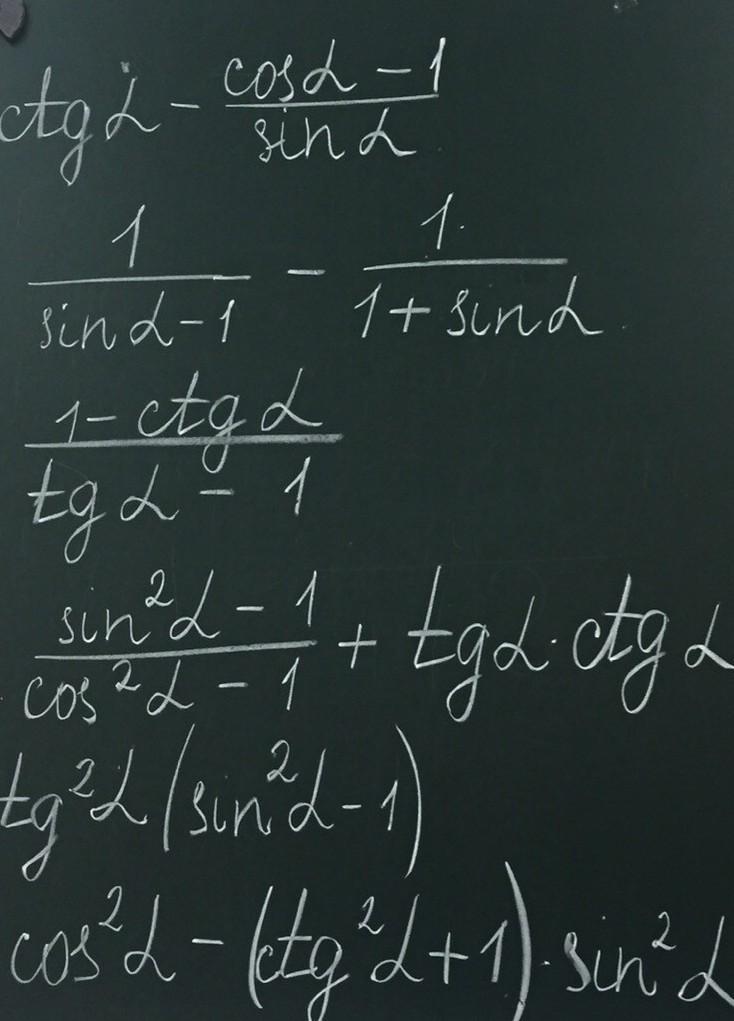 ctg α - (cos α - 1)/(sin α)
1/(sin α - 1) - 1/(1 + sin α)
(1 - ctg α)/(tg α - 1)
(sin² α - 1)/(cos² α - 1) + tg α · ctg α
tg² α (sin² α - 1)
cos² α - (ctg² α + 1) · sin² α